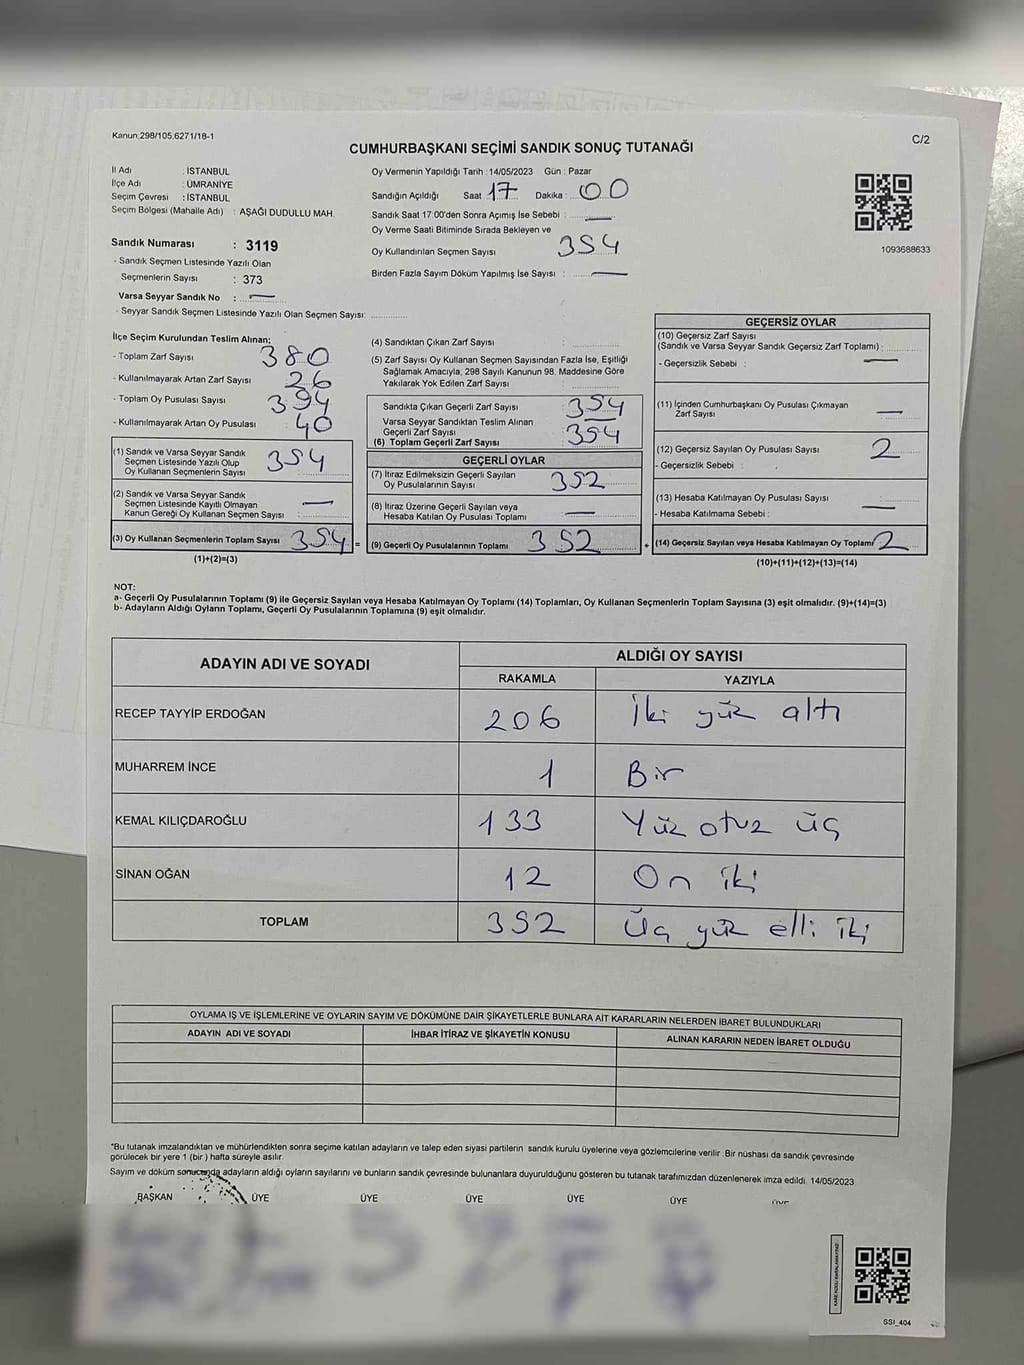 Kanun 298/105,6271/18-1
C/2
CUMHURBAŞKANI SEÇİMİ SANDIK SONUÇ TUTANAĞI
İl Adı : İSTANBUL
İlçe Adı : ÜMRANİYE
Seçim Çevresi : İSTANBUL
Seçim Bölgesi (Mahalle Adı) : AŞAĞI DUDULLU MAH.
Sandık Numarası : 3119
- Sandık Seçmen Listesinde Yazılı Olan
Seçmenlerin Sayısı : 373
Varsa Seyyar Sandık No : —
- Seyyar Sandık Seçmen Listesinde Yazılı Olan Seçmen Sayısı:
Oy Vermenin Yapıldığı Tarih : 14/05/2023 Gün : Pazar
Sandığın Açıldığı Saat 17 Dakika : 00
Sandık Saat 17:00'den Sonra Açımış İse Sebebi : —
Oy Verme Saati Bitiminde Sırada Bekleyen ve
Oy Kullandırılan Seçmen Sayısı 354
Birden Fazla Sayım Döküm Yapılmış İse Sayısı : —
1093688633
İlçe Seçim Kurulundan Teslim Alınan;
- Toplam Zarf Sayısı 380
- Kullanılmayarak Artan Zarf Sayısı 26
- Toplam Oy Pusulası Sayısı 394
- Kullanılmayarak Artan Oy Pusulası 40
(1) Sandık ve Varsa Seyyar Sandık
Seçmen Listesinde Yazılı Olup
Oy Kullanan Seçmenlerin Sayısı 354
(2) Sandık ve Varsa Seyyar Sandık
Seçmen Listesinde Kayıtlı Olmayan
Kanun Gereği Oy Kullanan Seçmen Sayısı : —
(3) Oy Kullanan Seçmenlerin Toplam Sayısı 354
(1)+(2)=(3)
(4) Sandıktan Çıkan Zarf Sayısı :
(5) Zarf Sayısı Oy Kullanan Seçmen Sayısından Fazla İse, Eşitliği
Sağlamak Amacıyla, 298 Sayılı Kanunun 98. Maddesine Göre
Yakılarak Yok Edilen Zarf Sayısı
Sandıkta Çıkan Geçerli Zarf Sayısı 354
Varsa Seyyar Sandıktan Teslim Alınan
Geçerli Zarf Sayısı —
(6) Toplam Geçerli Zarf Sayısı 354
GEÇERLİ OYLAR
(7) İtiraz Edilmeksizin Geçerli Sayılan
Oy Pusulalarının Sayısı 352
(8) İtiraz Üzerine Geçerli Sayılan veya
Hesaba Katılan Oy Pusulası Toplamı —
= (9) Geçerli Oy Pusulalarının Toplamı 352
GEÇERSİZ OYLAR
(10) Geçersiz Zarf Sayısı
(Sandık ve Varsa Seyyar Sandık Geçersiz Zarf Toplamı) :
- Geçersizlik Sebebi : —
(11) İçinden Cumhurbaşkanı Oy Pusulası Çıkmayan
Zarf Sayısı —
(12) Geçersiz Sayılan Oy Pusulası Sayısı : 2
- Geçersizlik Sebebi :
(13) Hesaba Katılmayan Oy Pusulası Sayısı :
- Hesaba Katılmama Sebebi : —
+ (14) Geçersiz Sayılan veya Hesaba Katılmayan Oy Toplamı 2
(10)+(11)+(12)+(13)=(14)
NOT:
a- Geçerli Oy Pusulalarının Toplamı (9) ile Geçersiz Sayılan veya Hesaba Katılmayan Oy Toplamı (14) Toplamları, Oy Kullanan Seçmenlerin Toplam Sayısına (3) eşit olmalıdır. (9)+(14)=(3)
b- Adayların Aldığı Oyların Toplamı, Geçerli Oy Pusulalarının Toplamına (9) eşit olmalıdır.
ADAYIN ADI VE SOYADI
ALDIĞI OY SAYISI
RAKAMLA YAZIYLA
RECEP TAYYİP ERDOĞAN 206 İki yüz altı
MUHARREM İNCE 1 Bir
KEMAL KILIÇDAROĞLU 133 Yüz otuz üç
SİNAN OĞAN 12 On iki
TOPLAM 352 Üç yüz elli iki
OYLAMA İŞ VE İŞLEMLERİNE VE OYLARIN SAYIM VE DÖKÜMÜNE DAİR ŞİKAYETLERLE BUNLARA AİT KARARLARIN NELERDEN İBARET BULUNDUKLARI
ADAYIN ADI VE SOYADI İHBAR İTİRAZ VE ŞİKAYETİN KONUSU ALINAN KARARIN NEDEN İBARET OLDUĞU
*Bu tutanak imzalandıktan ve mühürlendikten sonra seçime katılan adayların ve talep eden siyasi partilerin sandık kurulu üyelerine veya gözlemcilerine verilir. Bir nüshası da sandık çevresinde
görülecek bir yere 1 (bir ) hafta süreyle asılır.
Sayım ve döküm sonucunda adayların aldığı oyların sayılarını ve bunların sandık çevresinde bulunanlara duyurulduğunu gösteren bu tutanak tarafımızdan düzenlenerek imza edildi. 14/05/2023
BAŞKAN ÜYE ÜYE ÜYE ÜYE ÜYE ÜYE
SSI_404